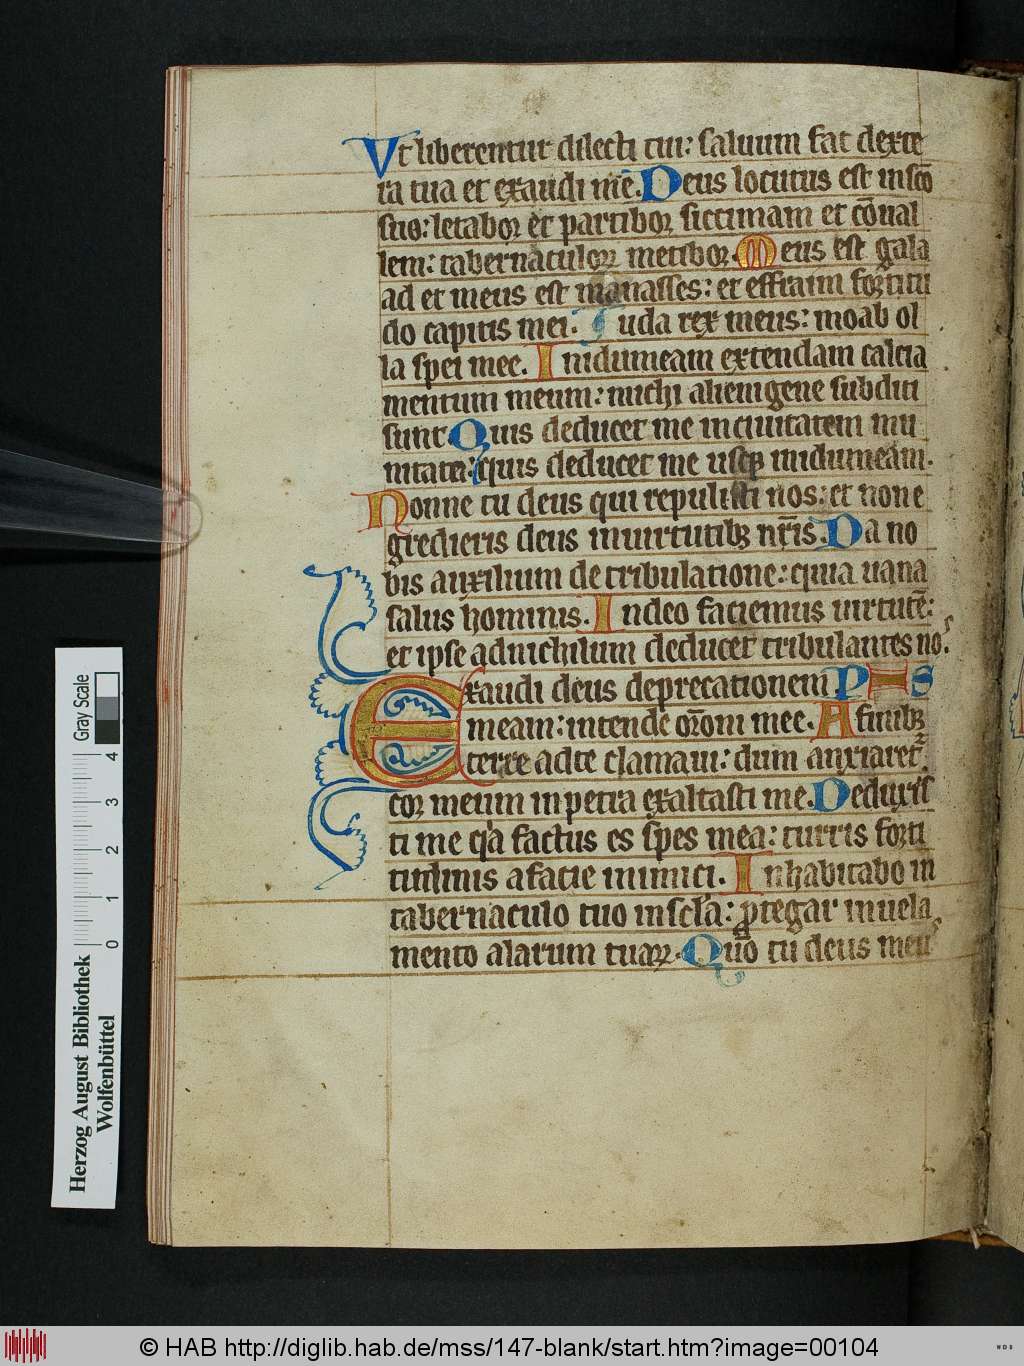 Vt liberentur dilecti tui: saluum fac dexte
ra tua et exaudi me. Deus locutus est in sco
suo: letabor et partibor siccimam et cōual
lem: tabernaculorꝝ metibor. Meus est gala
ad et meus est manasses: et effraim fortitu
do capitis mei. Iuda rex meus: moab ol
la spei mee. In idumeam extendam calcia
mentum meum: michi alienigene subditi
sunt. Quis deducet me in ciuitatem mu
nitam: quis deducet me usqꝫ in idumeam.
Nonne tu deus qui repulisti nos: et non e
gredieris deus in uirtutibꝫ nr̄is. Da no
bis auxilium de tribulatione: quia uana
salus hominis. In deo faciemus uirtutē:
et ipse ad nichilum deducet tribulantes nos.
Exaudi deus deprecationem PHS
meam: intende orōni mee. A finibꝫ
terre ad te clamaui: dum anxiaret
cor meum in petra exaltasti me. Deduxis
ti me qia factus es spes mea: turris forti
tudinis a facie inimici. Inhabitabo in
tabernaculo tuo in scl̄a: ꝓtegar in uela
mento alarum tuarꝝ. Qm̄ tu deus meus
Herzog August Bibliothek
Wolfenbüttel
0 1 2 3 4
Gray Scale
© HAB http://diglib.hab.de/mss/147-blank/start.htm?image=00104